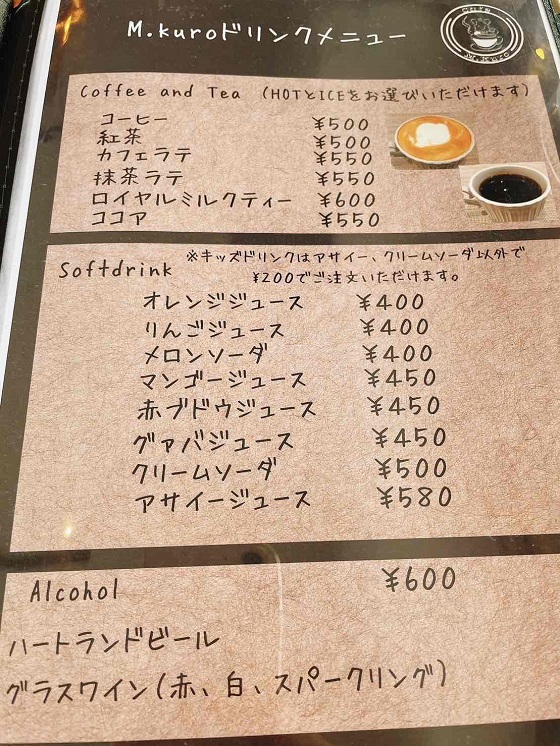 M.kuroドリンクメニュー
Coffee and Tea (HOTとICEをお選びいただけます)
コーヒー ¥500
紅茶 ¥500
カフェラテ ¥550
抹茶ラテ ¥550
ロイヤルミルクティー ¥600
ココア ¥550
Softdrink ※キッズドリンクはアサイー、クリームソーダ以外で
¥200でご注文いただけます。
オレンジジュース ¥400
りんごジュース ¥400
メロンソーダ ¥400
マンゴージュース ¥450
赤ブドウジュース ¥450
グァバジュース ¥450
クリームソーダ ¥500
アサイージュース ¥580
Alcohol ¥600
ハートランドビール
グラスワイン(赤、白、スパークリング)